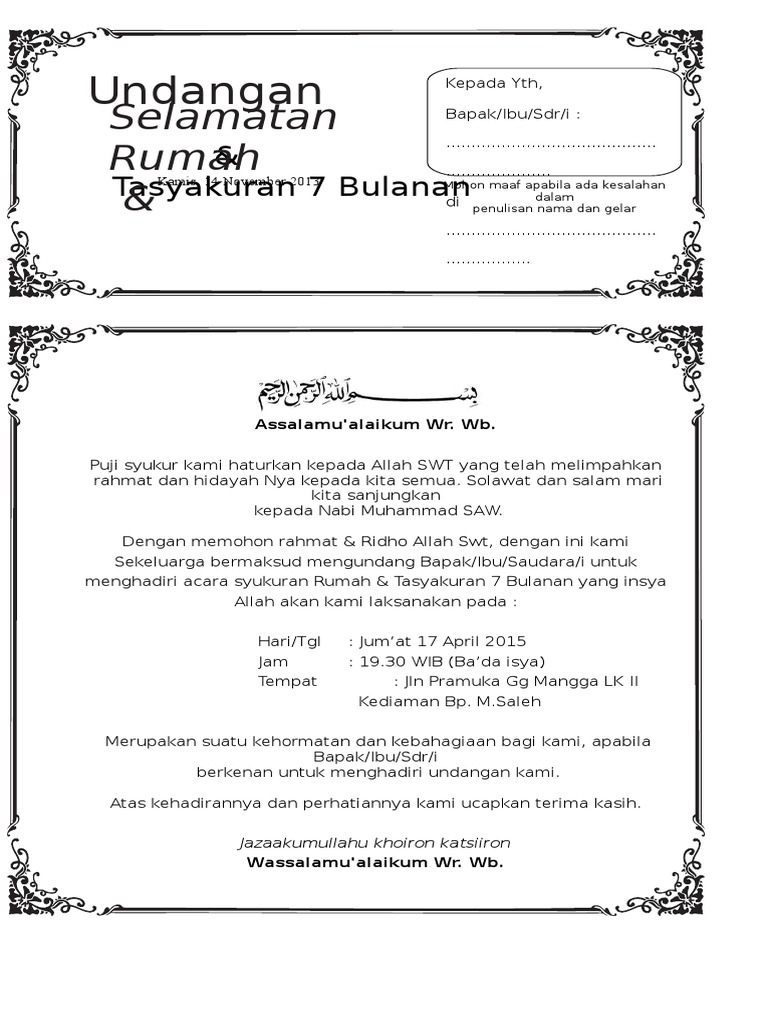 Undangan
Selamatan
Rumah
&
&
Kamis, 14 November 2013
Tasyakuran 7 Bulanan
Kepada Yth,
Bapak/Ibu/Sdr/i :
..........................................
.....................
Mohon maaf apabila ada kesalahan
dalam
penulisan nama dan gelar
di
..........................................
.................
بِسْمِ اللهِ الرَّحْمٰنِ الرَّحِيْمِ
Assalamu'alaikum Wr. Wb.
Puji syukur kami haturkan kepada Allah SWT yang telah melimpahkan
rahmat dan hidayah Nya kepada kita semua. Solawat dan salam mari
kita sanjungkan
kepada Nabi Muhammad SAW.
Dengan memohon rahmat & Ridho Allah Swt, dengan ini kami
Sekeluarga bermaksud mengundang Bapak/Ibu/Saudara/i untuk
menghadiri acara syukuran Rumah & Tasyakuran 7 Bulanan yang insya
Allah akan kami laksanakan pada :
Hari/Tgl : Jum’at 17 April 2015
Jam : 19.30 WIB (Ba’da isya)
Tempat : Jln Pramuka Gg Mangga LK II
Kediaman Bp. M.Saleh
Merupakan suatu kehormatan dan kebahagiaan bagi kami, apabila
Bapak/Ibu/Sdr/i
berkenan untuk menghadiri undangan kami.
Atas kehadirannya dan perhatiannya kami ucapkan terima kasih.
Jazaakumullahu khoiron katsiiron
Wassalamu'alaikum Wr. Wb.